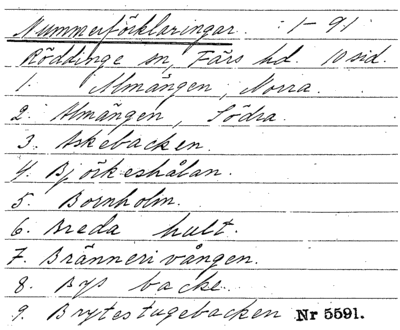 Nummerförklaringar. : 1-91
Röddinge sn, Färs hd. 10 sid.
1. Almängen, Norra.
2. Almängen, Södra.
3. Askebacken.
4. Björkeshålan.
5. Bornholm.
6. Breda hult.
7. Bränneri vången.
8. Bys backe.
9. Brytestugebacken Nr 5591.